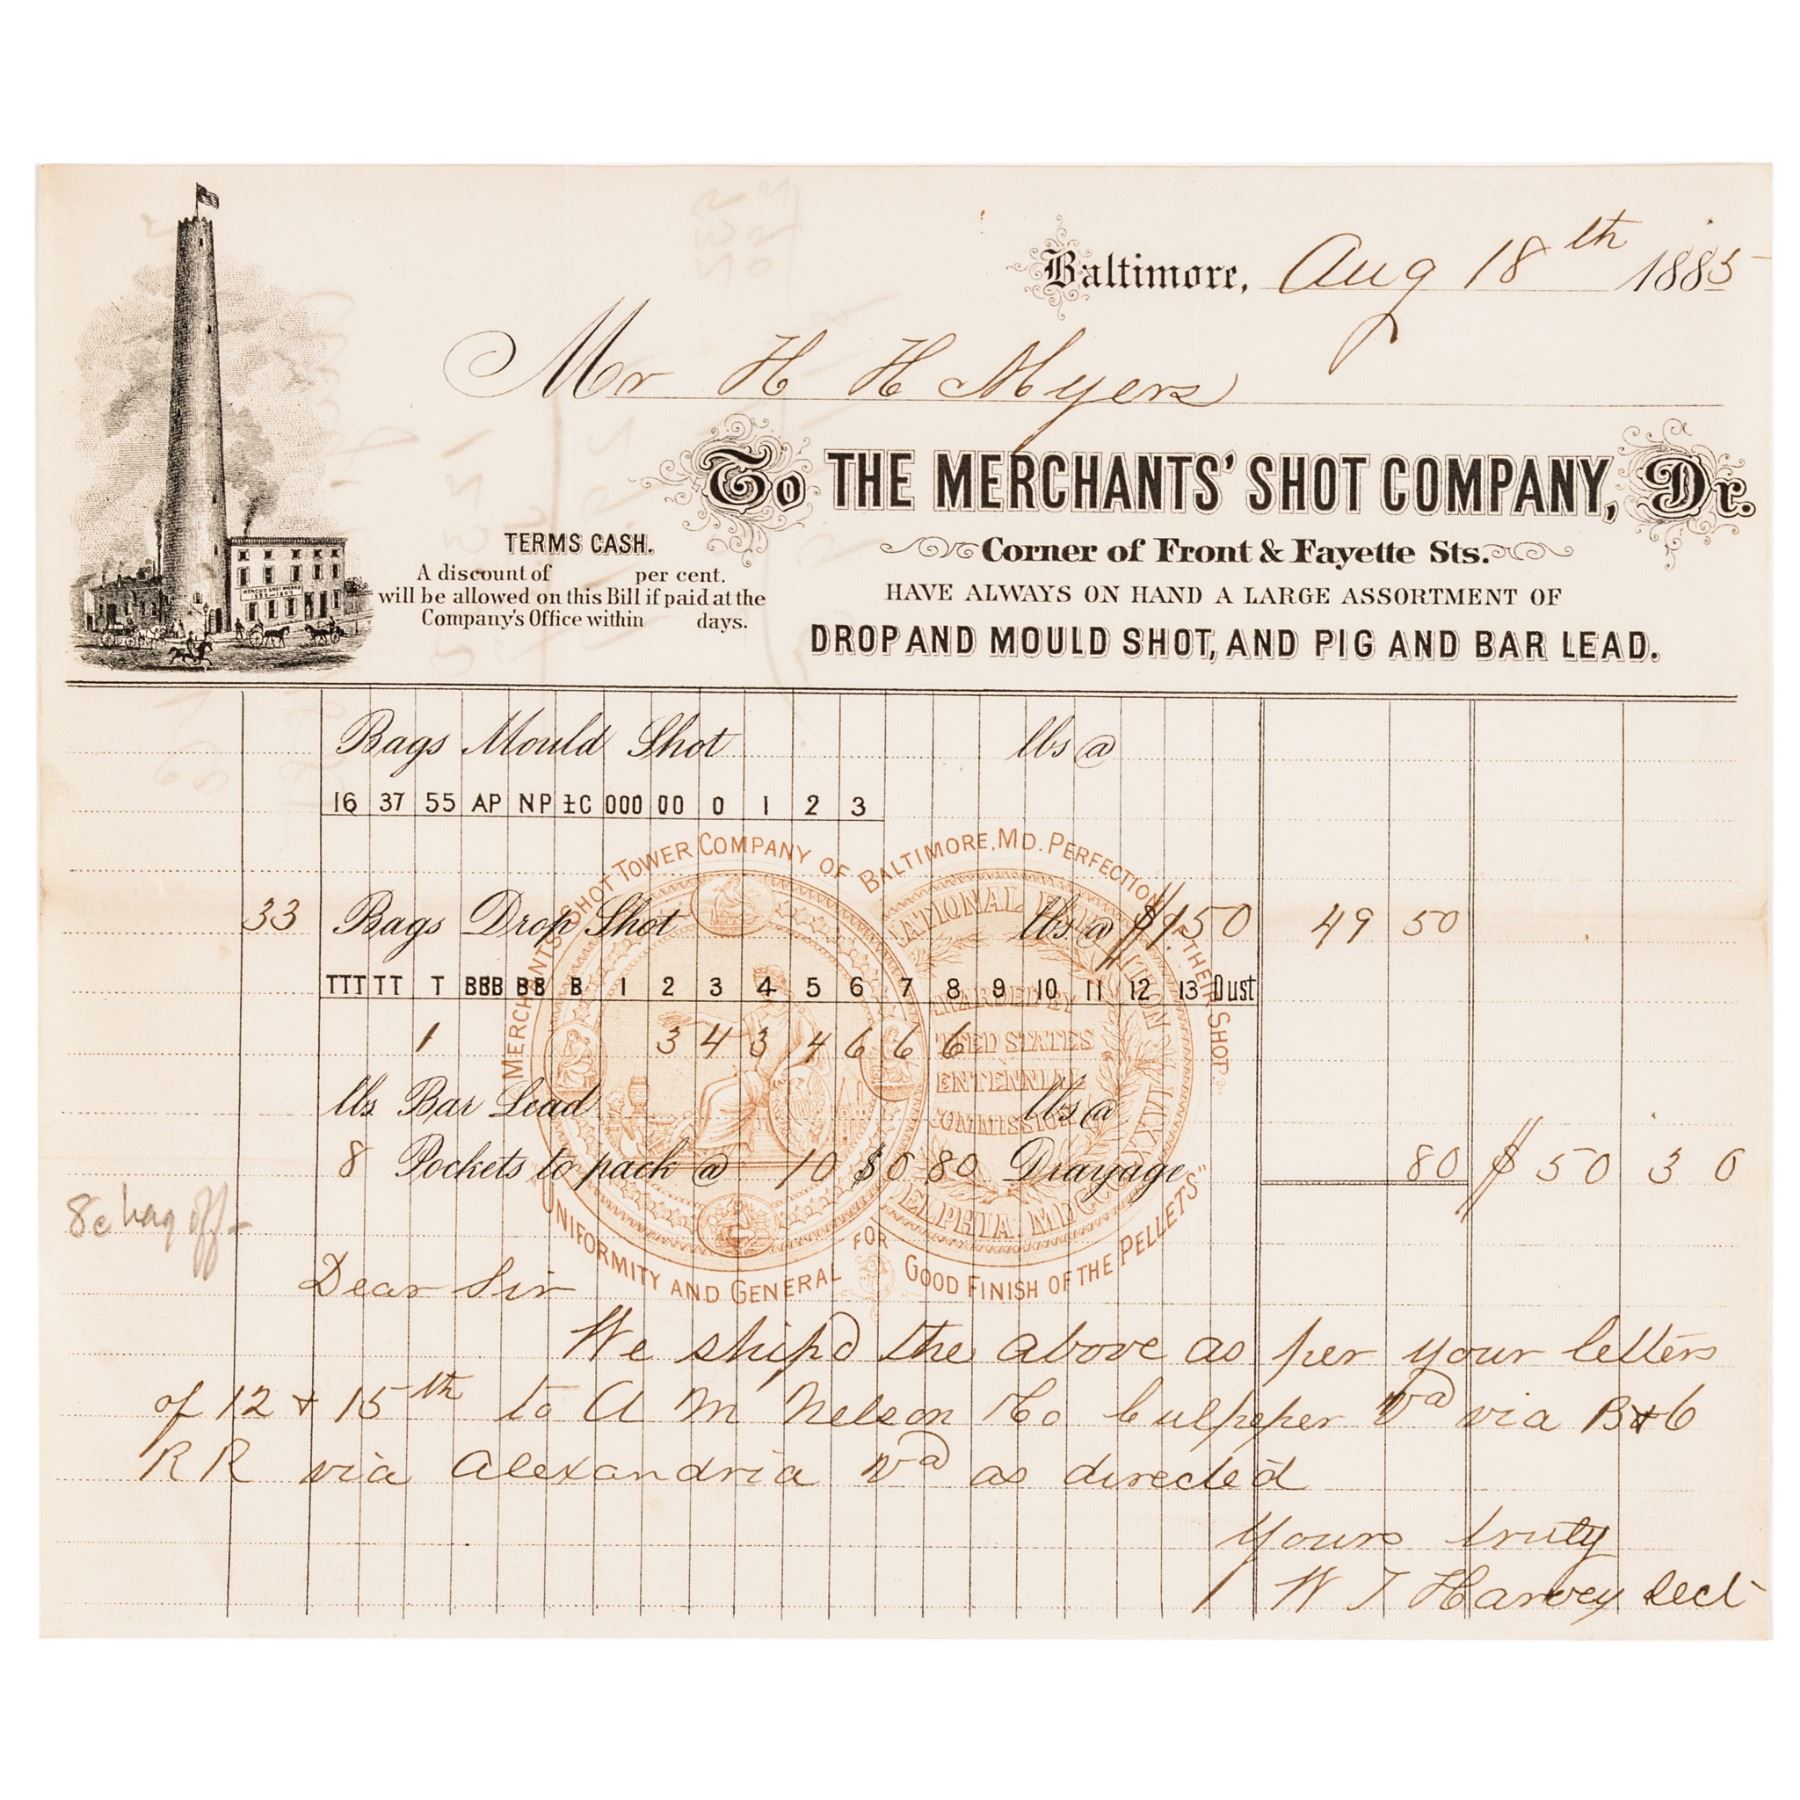 Baltimore, Aug 18th 1885
Mr H H Myers
To THE MERCHANTS' SHOT COMPANY, Dr.
Corner of Front & Fayette Sts.
HAVE ALWAYS ON HAND A LARGE ASSORTMENT OF
DROP AND MOULD SHOT, AND PIG AND BAR LEAD.
TERMS CASH.
A discount of per cent.
will be allowed on this Bill if paid at the
Company's Office within days.
Bags Mould Shot lbs @
16 37 55 AP NP ŁC 000 00 0 1 2 3
33 Bags Drop Shot lbs @ $1 50 49 50
TTT TT T BBB BB B 1 2 3 4 5 6 7 8 9 10 11 12 13 Dust
1 3 4 3 4 6 6 6
lbs Bar Lead lbs @
8 Pockets to pack @ 10 $0 80 Drayage 80 $50 30
8c bag off
Dear Sir
We ship'd the above as per your letters
of 12 & 15th to A M Nelson Co Culpeper Va via B&O
RR via Alexandria Va as directed
Yours truly
W J Harvey Sect
MERCHANTS' SHOT TOWER COMPANY OF BALTIMORE, MD. PERFECTION OF THEIR SHOP
UNIFORMITY AND GENERAL GOOD FINISH OF THE PELLETS"
FOR
NATIONAL EXHIBITION
AWARDED BY
UNITED STATES
CENTENNIAL
COMMISSION